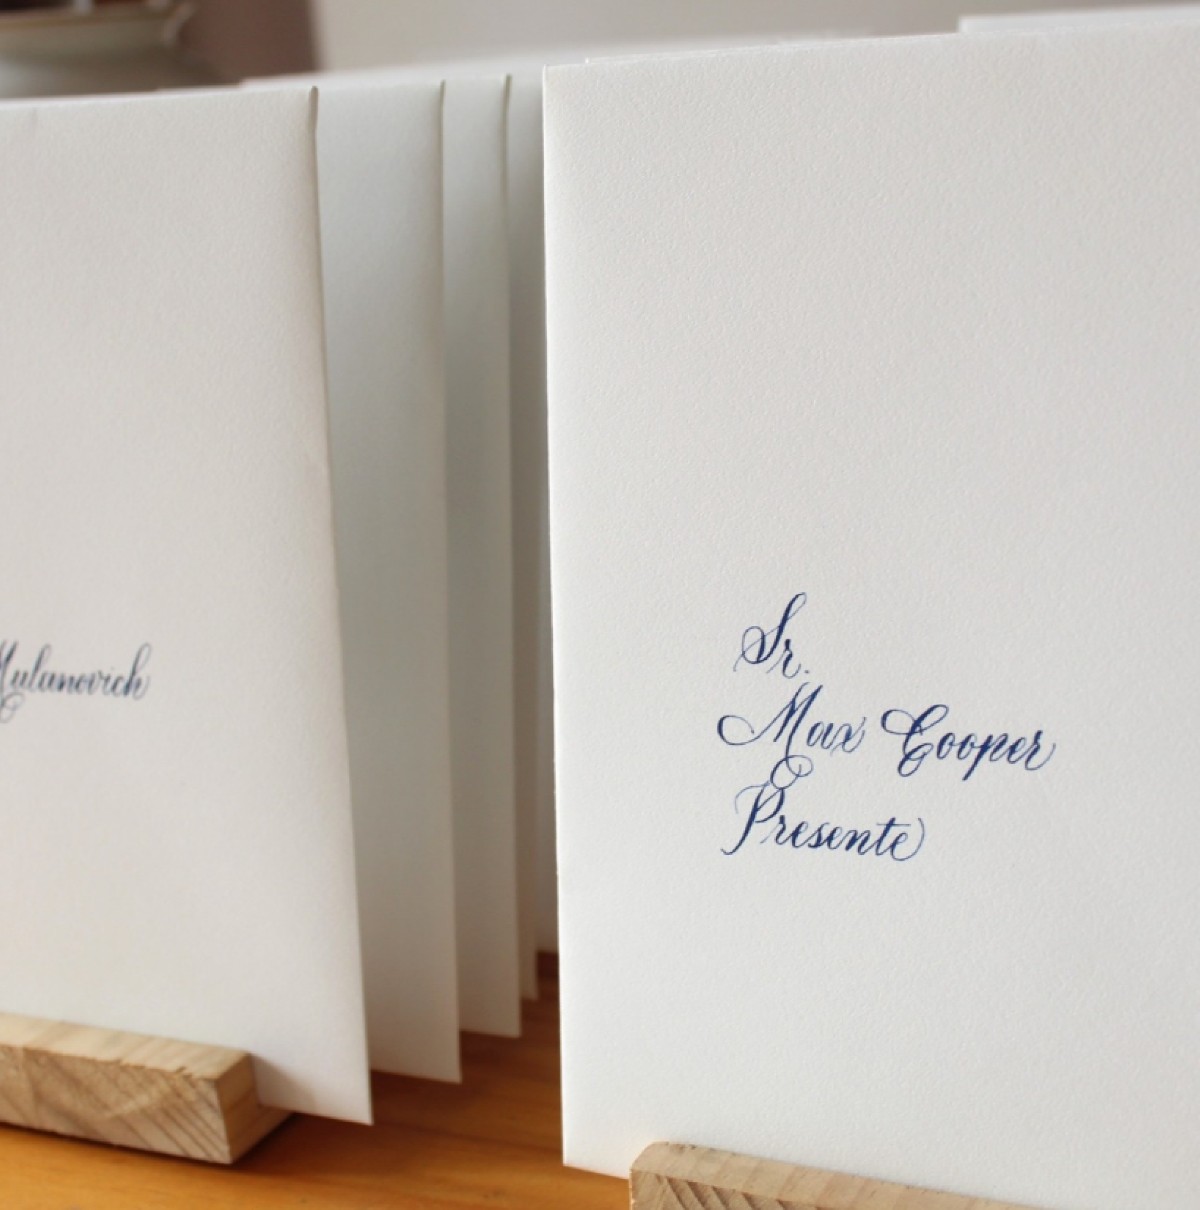 Mulanovich
Sr.
Max Cooper
Presente